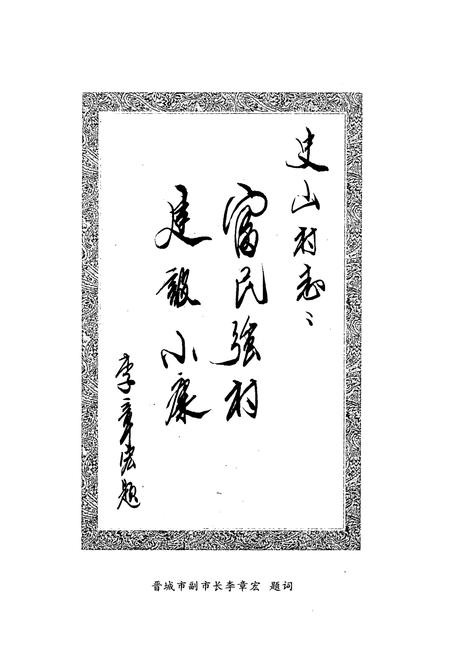 史山村志：
富民强村
建设小康
李章宏题
晋城市副市长李章宏 题词